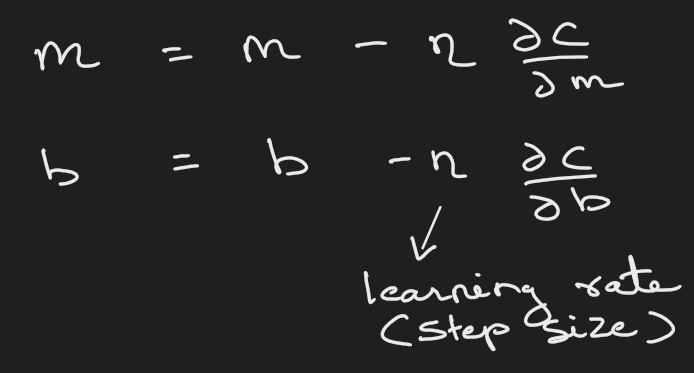 m = m - η ∂C/∂m
b = b - η ∂C/∂b
learning rate
(step size)